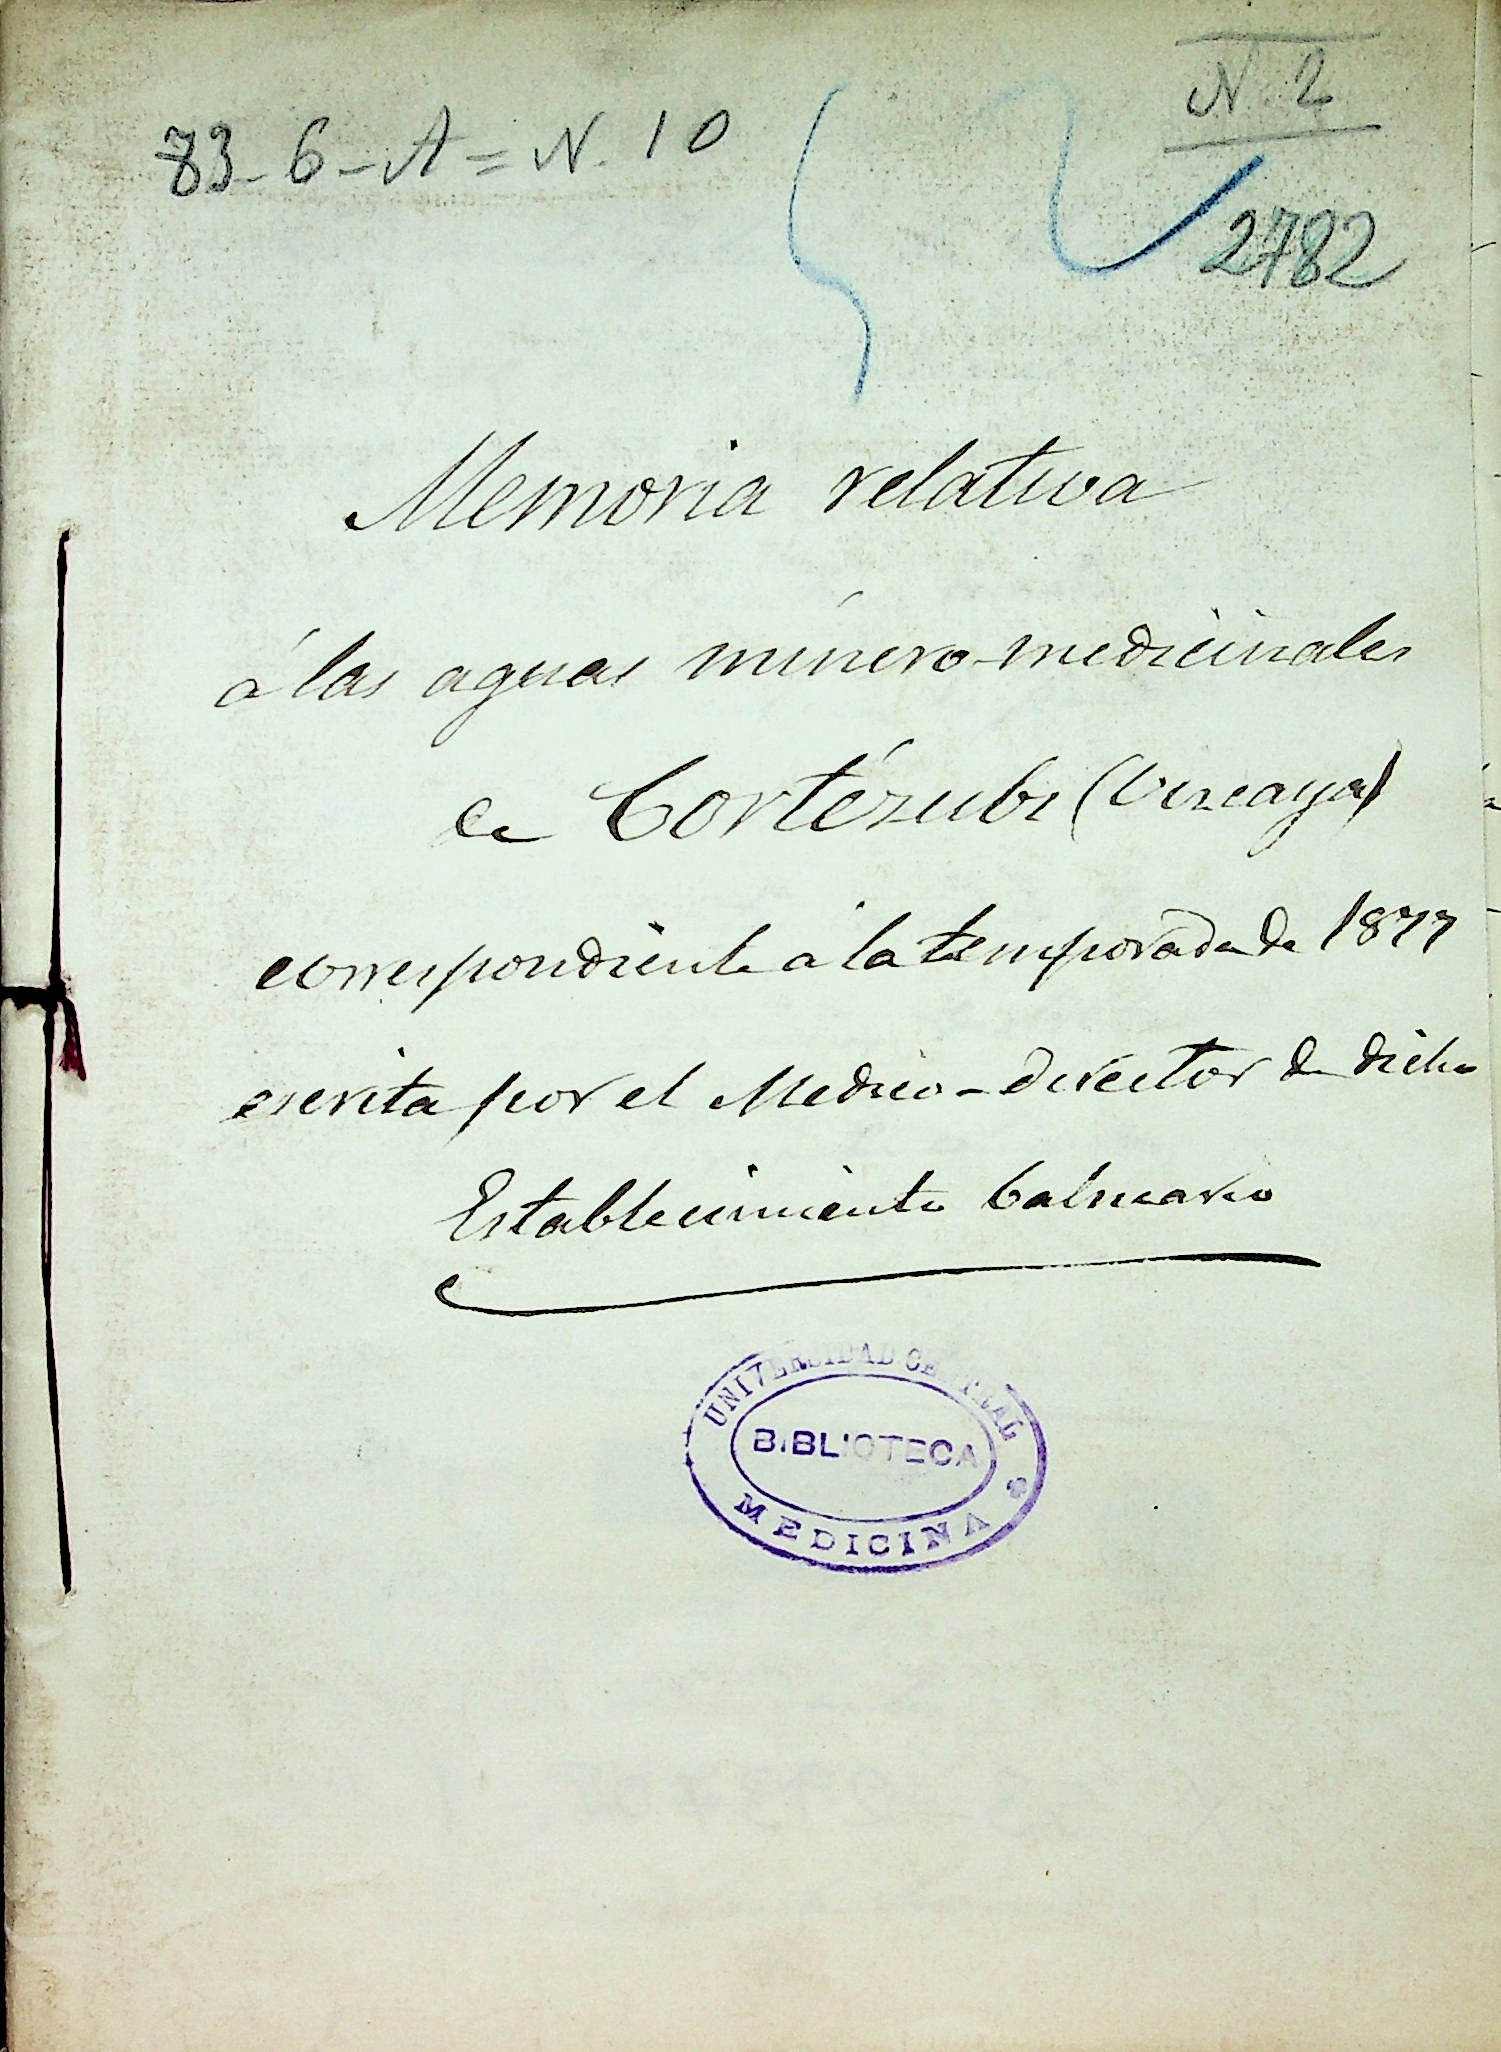 N. 2
83-6-A=N. 10
2782
Memoria relativa
á las aguas minero-medicinales
de Cortézubi (Vizcaya)
correspondiente á la temporada de 1877
escrita por el Medico-director de dicho
Establecimiento balneario
UNIVERSIDAD CENTRAL
BIBLIOTECA
MEDICINA